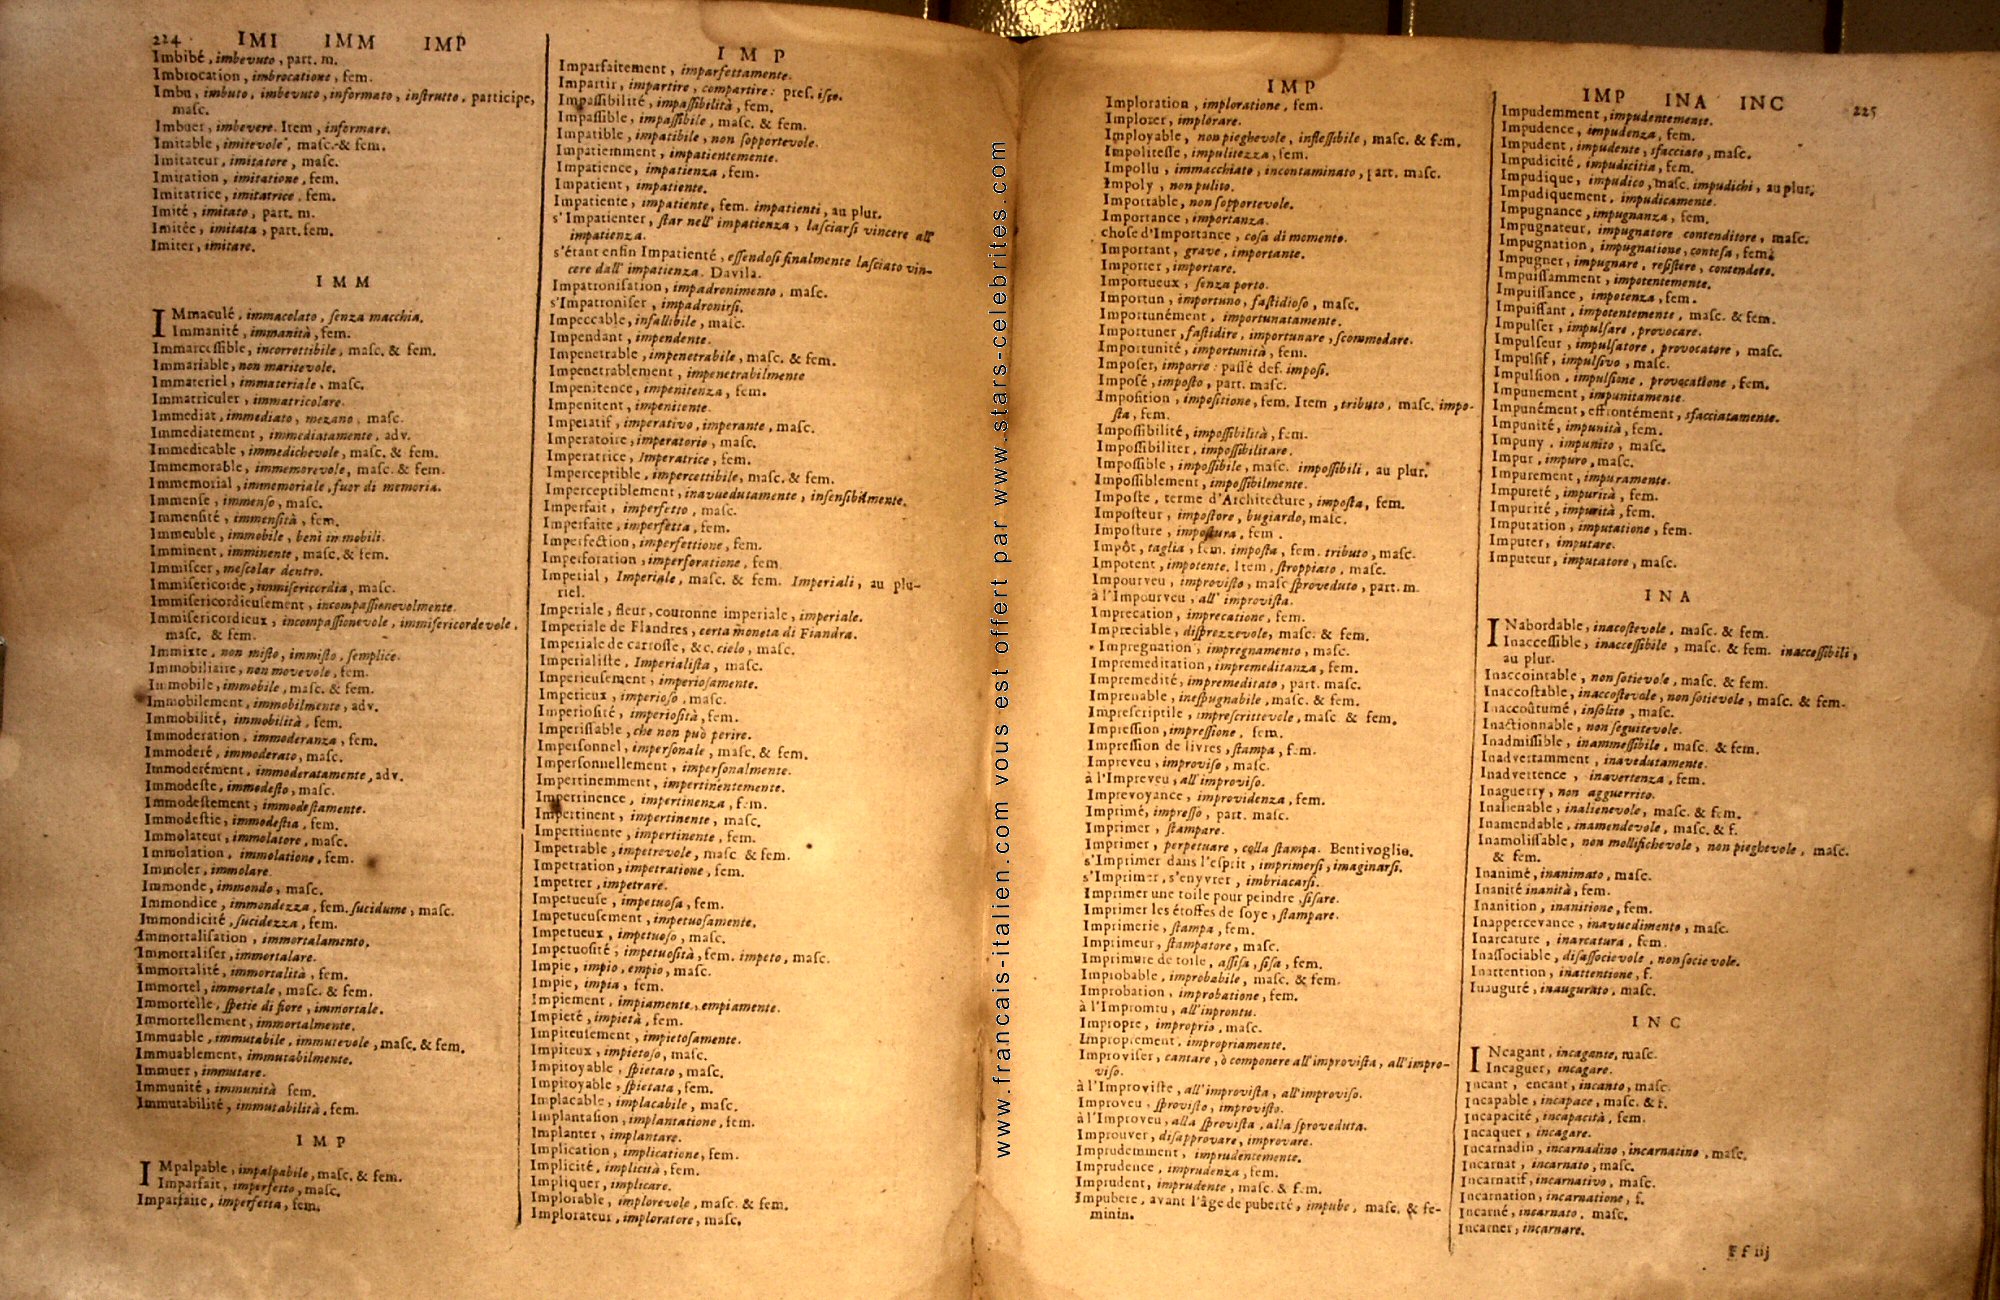 224 IMI IMM IMP
Imbibé, imbevuto, part. m.
Imbrocation, imbrocatione, fem.
Imbu, imbuto, imbevuto, informato, inſtrutto, participe,
maſc.
Imbuer, imbevere. Item, informare.
Imitable, imitevole, maſc. & fem.
Imitateur, imitatore, maſc.
Imitation, imitatione, fem.
Imitatrice, imitatrice, fem.
Imité, imitato, part. m.
Imitée, imitata, part. fem.
Imiter, imitare.
IMM
IMmaculé, immacolato, ſenza macchia.
Immanité, immanità, fem.
Immarceſſible, incorrottibile, maſc. & fem.
Immariable, non maritevole.
Immateriel, immateriale, maſc.
Immatriculer, immatricolare.
Immediat, immediato, mezano, maſc.
Immediatement, immediatamente, adv.
Immedicable, immedichevole, maſc. & fem.
Immemorable, immemorevole, maſc. & fem.
Immemorial, immemoriale, fuor di memoria.
Immenſe, immenſo, maſc.
Immenſité, immenſità, fem.
Immeuble, immobile, beni immobili.
Imminent, imminente, maſc. & fem.
Immiſcer, meſcolar dentro.
Immiſericorde, immiſericordia, maſc.
Immiſericordieuſement, incompaſſionevolmente.
Immiſericordieux, incompaſſionevole, immiſericordevole,
maſc. & fem.
Immixte, non miſto, immiſto, ſemplice.
Immobiliaire, non movevole, fem.
Immobile, immobile, maſc. & fem.
Immobilement, immobilmente, adv.
Immobilité, immobilità, fem.
Immoderation, immoderanza, fem.
Immoderé, immoderato, maſc.
Immoderément, immoderatamente, adv.
Immodeſte, immodeſto, maſc.
Immodeſtement, immodeſtamente.
Immodeſtie, immodeſtia, fem.
Immolateur, immolatore, maſc.
Immolation, immolatione, fem.
Immoler, immolare.
Immonde, immondo, maſc.
Immondice, immondezza, fem. ſucidume, maſc.
Immondicité, ſucidezza, fem.
Immortaliſation, immortalamento.
Immortaliſer, immortalare.
Immortalité, immortalità, fem.
Immortel, immortale, maſc. & fem.
Immortelle, ſpetie di fiore, immortale.
Immortellement, immortalmente.
Immuable, immutabile, immutevole, maſc. & fem.
Immuablement, immutabilmente.
Immuer, immutare.
Immunité, immunità fem.
Immutabilité, immutabilità, fem.
IMP
IMpalpable, impalpabile, maſc. & fem.
Imparfait, imperfetto, maſc.
Imparfaite, imperfetta, fem.
IMP
Imparfaitement, imparfettamente.
Impartir, impartire, compartire: preſ. iſco.
Impaſſibilité, impaſſibilità, fem.
Impaſſible, impaſſibile, maſc. & fem.
Impatible, impatibile, non ſopportevole.
Impatiemment, impatientemente.
Impatience, impatienza, fem.
Impatient, impatiente.
Impatiente, impatiente, fem. impatienti, au plur.
s'Impatienter, ſtar nell' impatienza, laſciarſi vincere all'
impatienza.
s'étant enfin Impatienté, eſſendoſi finalmente laſciato vin-
cere dall' impatienza. Davila.
Impatroniſation, impadronimento, maſc.
s'Impatroniſer, impadronirſi.
Impeccable, infallibile, maſc.
Impendant, impendente.
Impenetrable, impenetrabile, maſc. & fem.
Impenetrablement, impenetrabilmente
Impenitence, impenitenza, fem.
Impenitent, impenitente.
Imperatif, imperativo, imperante, maſc.
Imperatoire, imperatorio, maſc.
Imperatrice, Imperatrice, fem.
Imperceptible, impercettibile, maſc. & fem.
Imperceptiblement, inavuedutamente, inſenſibilmente.
Imperfait, imperfetto, maſc.
Imperfaite, imperfetta, fem.
Imperfection, imperfettione, fem.
Imperforation, imperforatione, fem.
Imperial, Imperiale, maſc. & fem. Imperiali, au plu-
riel.
Imperiale, fleur, couronne imperiale, imperiale.
Imperiale de Flandres, certa moneta di Fiandra.
Imperiale de carroſſe, &c. cielo, maſc.
Imperialiſte, Imperialiſta, maſc.
Imperieuſement, imperioſamente.
Imperieux, imperioſo, maſc.
Imperioſité, imperioſità, fem.
Imperiſſable, che non può perire.
Imperſonnel, imperſonale, maſc. & fem.
Imperſonnellement, imperſonalmente.
Impertinemment, impertinentemente.
Impertinence, impertinenza, fem.
Impertinent, impertinente, maſc.
Impertinente, impertinente, fem.
Impetrable, impetrevole, maſc & fem.
Impetration, impetratione, fem.
Impetrer, impetrare.
Impetueuſe, impetuoſa, fem.
Impetueuſement, impetuoſamente.
Impetueux, impetuoſo, maſc.
Impetuoſité, impetuoſità, fem. impeto, maſc.
Impie, impio, empio, maſc.
Impie, impia, fem.
Impiement, impiamente, empiamente.
Impieté, impietà, fem.
Impiteuſement, impietoſamente.
Impiteux, impietoſo, maſc.
Impitoyable, ſpietato, maſc.
Impitoyable, ſpietata, fem.
Implacable, implacabile, maſc.
Implantaſion, implantatione, fem.
Implanter, implantare.
Implication, implicatione, fem.
Implicité, implicità, fem.
Impliquer, implicare.
Implorable, implorevole, maſc. & fem.
Implorateur, imploratore, maſc.
www.francais-italien.com vous est offert par www.stars-celebrites.com
IMP
Imploration, imploratione, fem.
Implorer, implorare.
Imployable, non pieghevole, infleſſibile, maſc. & fem.
Impoliteſſe, impulitezza, fem.
Impollu, immacchiato, incontaminato, part. maſc.
Impoly, non pulito.
Importable, non ſopportevole.
Importance, importanza.
choſe d'Importance, coſa di momento.
Important, grave, importante.
Importer, importare.
Importueux, ſenza porto.
Importun, importuno, faſtidioſo, maſc.
Importunément, importunatamente.
Importuner, faſtidire, importunare, ſcommodare.
Importunité, importunità, fem.
Impoſer, imporre: paſſé def. impoſi.
Impoſé, impoſto, part. maſc.
Impoſition, impoſitione, fem. Item, tributo, maſc. impo-
ſta, fem.
Impoſſibilité, impoſſibilità, fem.
Impoſſibiliter, impoſſibilitare.
Impoſſible, impoſſibile, maſc. impoſſibili, au plur.
Impoſſiblement, impoſſibilmente.
Impoſte, terme d'Architecture, impoſta, fem.
Impoſteur, impoſtore, bugiardo, maſc.
Impoſture, impoſtura, fem.
Impôt, taglia, fem. impoſta, fem. tributo, maſc.
Impotent, impotente. Item, ſtroppiato, maſc.
Impourveu, improviſto, maſc ſproveduto, part. m.
à l'Impourveu, all' improviſta.
Imprecation, imprecatione, fem.
Impreciable, diſprezzevole, maſc. & fem.
Impregnation, impregnamento, maſc.
Impremeditation, impremeditanza, fem.
Impremedité, impremeditato, part. maſc.
Imprenable, ineſpugnabile, maſc. & fem.
Impreſcriptile, impreſcrittevole, maſc. & fem.
Impreſſion, impreſſione, fem.
Impreſſion de livres, ſtampa, fem.
Impreveu, improviſo, maſc.
à l'Impreveu, all'improviſo.
Imprevoyance, improvidenza, fem.
Imprimé, impreſſo, part. maſc.
Imprimer, ſtampare.
Imprimer, perpetuare, colla ſtampa. Bentivoglio.
s'Imprimer dans l'eſprit, imprimerſi, imaginarſi.
s'Imprimer, s'enyvrer, imbriacarſi.
Imprimer une toile pour peindre, ſiſare.
Imprimer les étoffes de ſoye, ſtampare.
Imprimerie, ſtampa, fem.
Imprimeur, ſtampatore, maſc.
Imprimure de toile, aſſiſa, ſiſa, fem.
Improbable, improbabile, maſc. & fem.
Improbation, improbatione, fem.
à l'Impromtu, all'inprontu.
Impropre, improprio, maſc.
Impropiement, impropriamente.
Improviſer, cantare, ò componere all'improviſta, all'impro-
viſo.
à l'Improviſte, all'improviſta, all'improviſo.
Improveu, ſproviſto, improviſto.
à l'Improveu, alla ſproviſta, alla ſproveduta.
Improuver, diſapprovare, improvare.
Imprudemment, imprudentemente.
Imprudence, imprudenza, fem.
Imprudent, imprudente, maſc. & fem.
Impubere, avant l'âge de puberté, impube, maſc. & fe-
minin.
IMP INA INC 225
Impudemment, impudentemente.
Impudence, impudenza, fem.
Impudent, impudente, sfacciato, maſc.
Impudicité, impudicitia, fem.
Impudique, impudico, maſc. impudichi, au plur.
Impudiquement, impudicamente.
Impugnance, impugnanza, fem.
Impugnateur, impugnatore contenditore, maſc.
Impugnation, impugnatione, conteſa, fem.
Impugner, impugnare, reſiſtere, contendere.
Impuiſſamment, impotentemente.
Impuiſſance, impotenza, fem.
Impuiſſant, impotentemente, maſc. & fem.
Impulſer, impulſare, provocare.
Impulſeur, impulſatore, provocatore, maſc.
Impulſif, impulſivo, maſc.
Impulſion, impulſione, provocatione, fem.
Impunement, impunitamente.
Impunément, effrontément, sfacciatamente.
Impunité, impunità, fem.
Impuny, impunito, maſc.
Impur, impuro, maſc.
Impurement, impuramente.
Impureté, impurità, fem.
Impurité, impurità, fem.
Imputation, imputatione, fem.
Imputer, imputare.
Imputeur, imputatore, maſc.
INA
INabordable, inacoſtevole, maſc. & fem.
Inacceſſible, inacceſſibile, maſc. & fem. inacceſſibili,
au plur.
Inaccointable, non ſotievole, maſc. & fem.
Inaccoſtable, inaccoſtevole, non ſotievole, maſc. & fem.
Inaccoûtumé, inſolito, maſc.
Inactionnable, non ſeguitevole.
Inadmiſſible, inammeſſibile, maſc. & fem.
Inadvertamment, inavedutamente.
Inadvertence, inavertenza, fem.
Inaguerry, non agguerrito.
Inalienable, inalienevole, maſc. & fem.
Inamendable, inamendevole, maſc. & f.
Inamoliſſable, non mollifichevole, non pieghevole, maſc.
& fem.
Inanimé, inanimato, maſc.
Inanité inanità, fem.
Inanition, inanitione, fem.
Inappercevance, inavuedimento, maſc.
Inarcature, inarcatura, fem.
Inaſſociable, diſaſſocievole, non ſocievole.
Inattention, inattentione, f.
Inauguré, inaugurato, maſc.
INC
INcagant, incagante, maſc.
Incaguer, incagare.
Incant, encant, incanto, maſc.
Incapable, incapace, maſc. & f.
Incapacité, incapacità, fem.
Incaquer, incagare.
Incarnadin, incarnadino, incarnatino, maſc.
Incarnat, incarnato, maſc.
Incarnatif, incarnativo, maſc.
Incarnation, incarnatione, f.
Incarné, incarnato, maſc.
Incarner, incarnare.
Ff iij